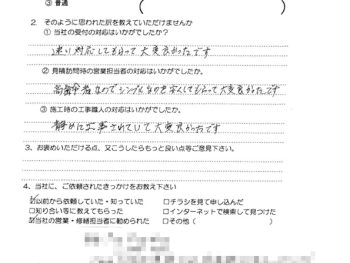 ③ 普通
2. そのように思われた訳を教えていただけませんか
① 当社の受付の対応はいかがでしたか。
速い対応してもらって大変良かったです
② 見積訪問時の営業担当者の対応はいかがでしたか。
高齢者なのでシンプルなものをえらんでもらって大変良かったです
③ 施工時の工事職人の対応はいかがでしたか。
静かに工事されていて大変良かったです
3. お褒めいただける点、又こうしたらもっと良い点等ご意見下さい。
4. 当社に、ご依頼されたきっかけをお教え下さい
☑以前から依頼していた・知っていた □チラシを見て申し込んだ
□知り合い等に教えてもらった □インターネットで検索して見つけた
☑当社の営業・修繕担当者に勧められた □その他( )